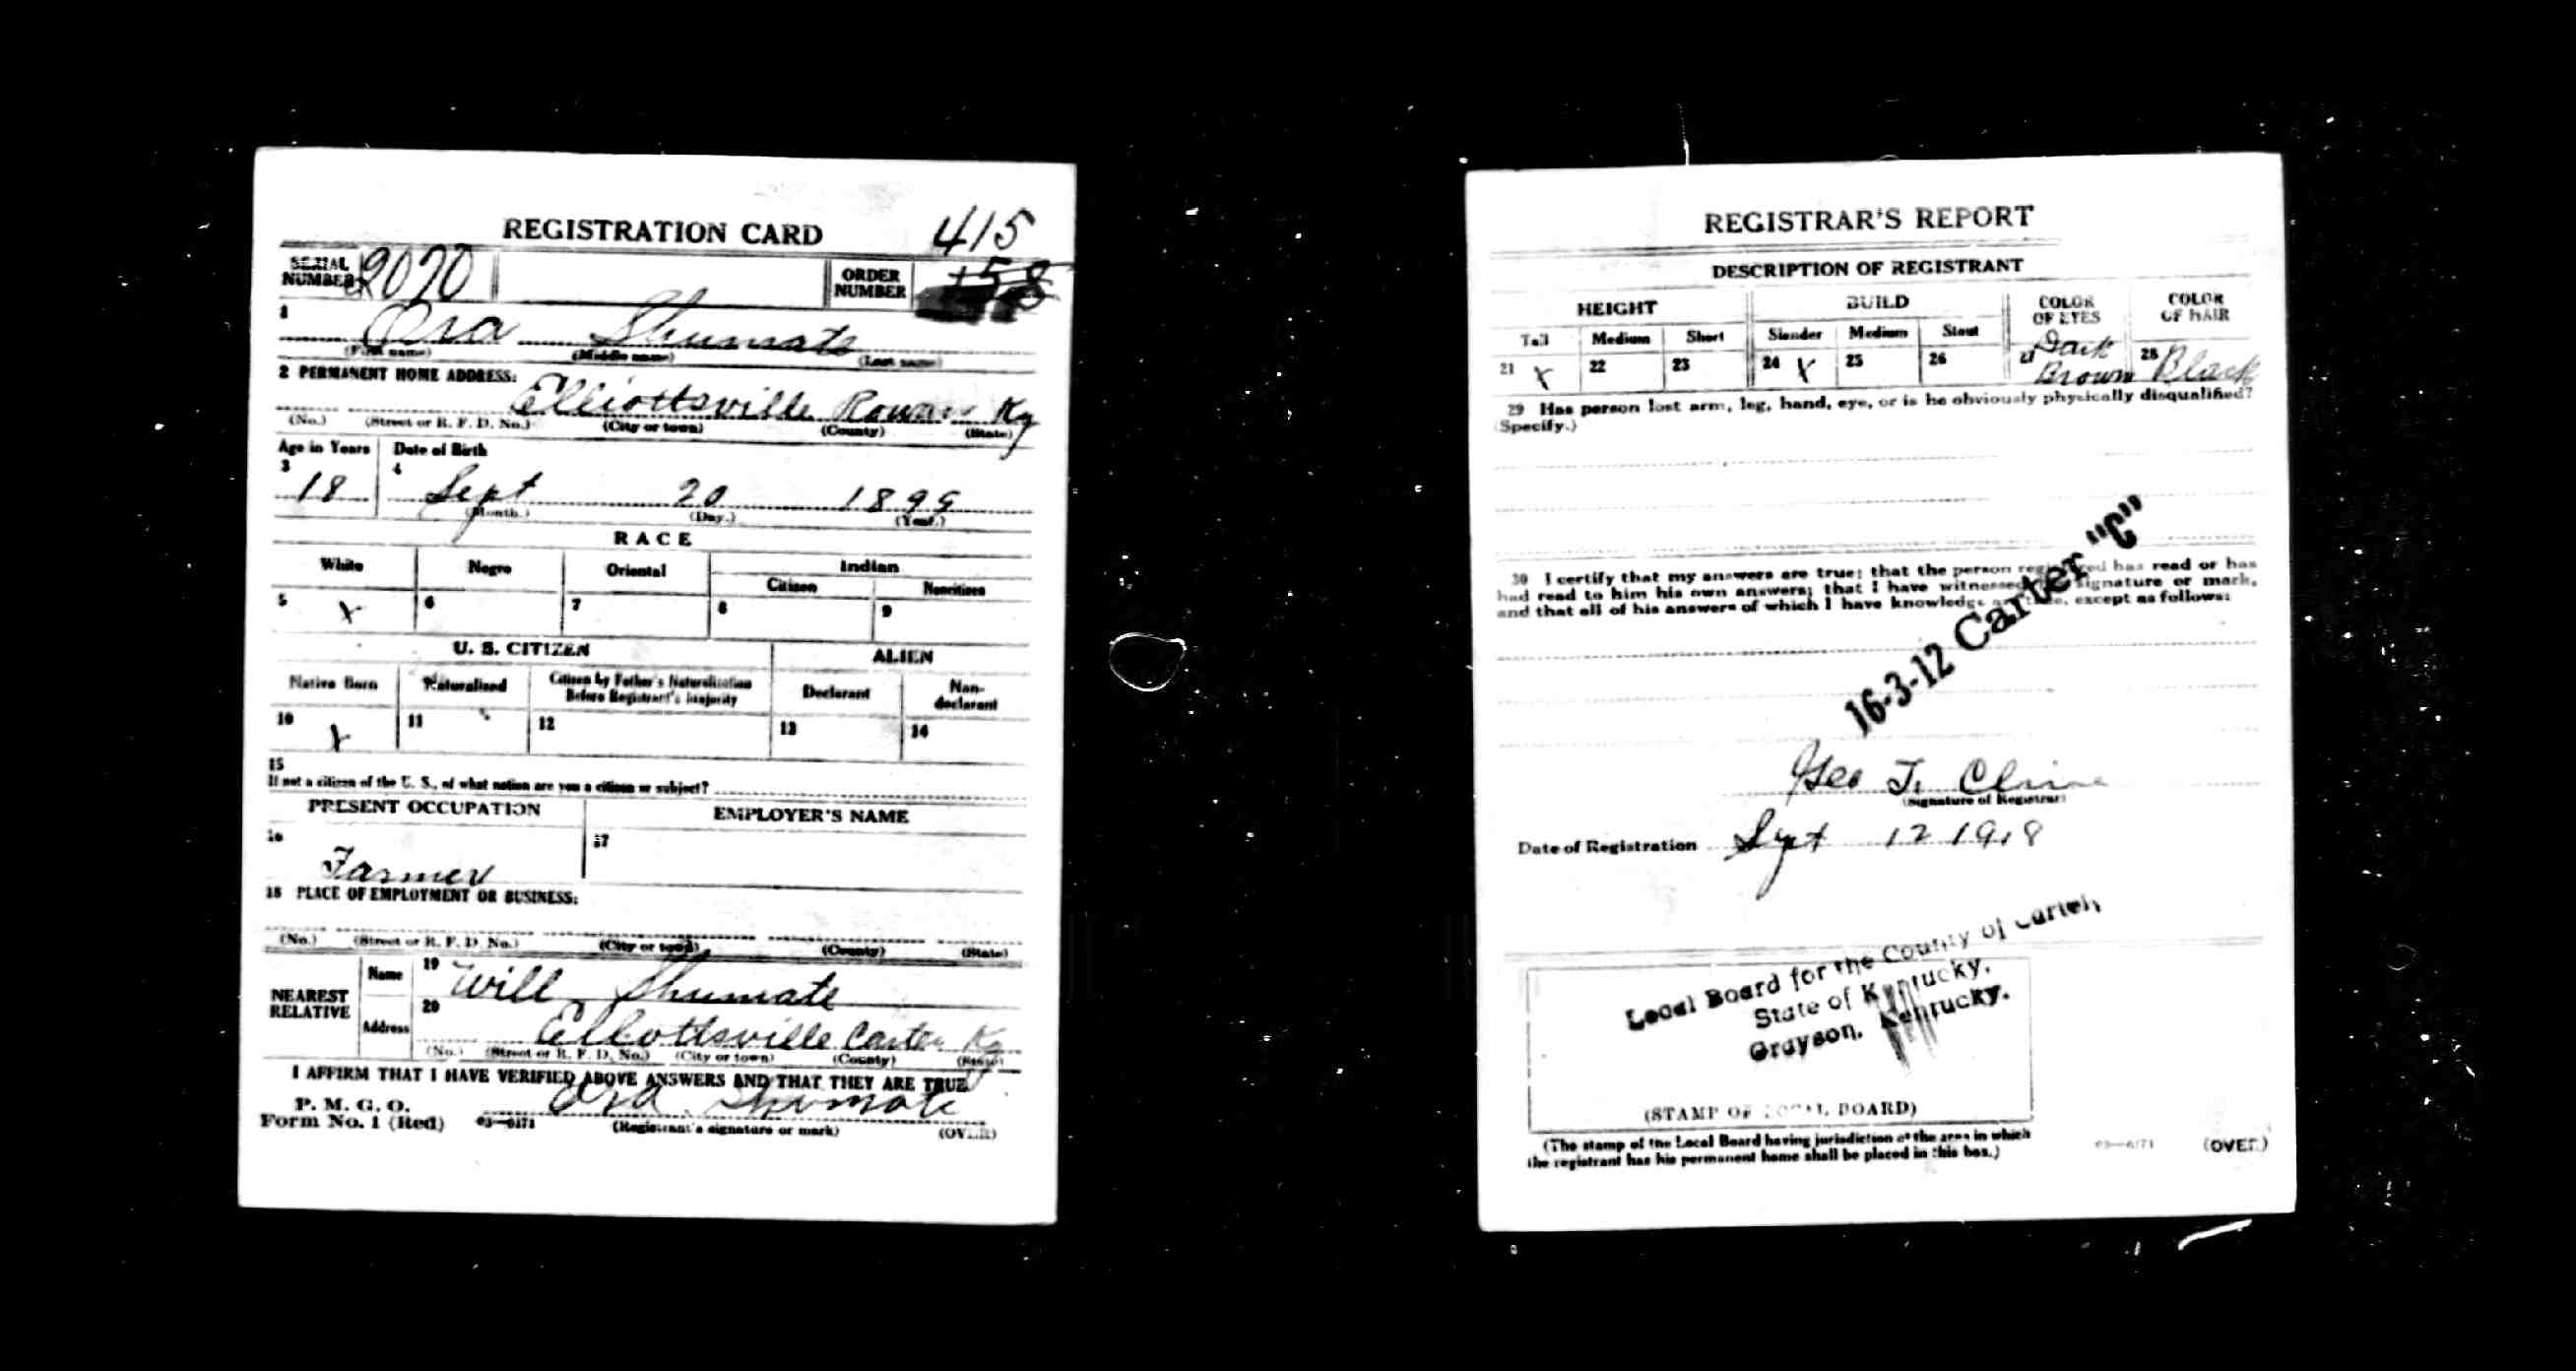 REGISTRATION CARD 415
SERIAL NUMBER 2070 ORDER NUMBER
1 Ora Shumate
(First name) (Middle name) (Last name)
2 PERMANENT HOME ADDRESS:
Elliottsville Rowan Ky
(No.) (Street or R. F. D. No.) (City or town) (County) (State)
Age in Years Date of Birth
3 4
18 Sept 20 1899
(Month.) (Day.) (Year.)
RACE
White Negro Oriental Indian
Citizen Noncitizen
5 X 6 7 8 9
U. S. CITIZEN ALIEN
Native Born Naturalized Citizen by Father's Naturalization Before Registrant's Majority Declarant Non-declarant
10 X 11 12 13 14
15
If not a citizen of the U. S., of what nation are you a citizen or subject?
PRESENT OCCUPATION EMPLOYER'S NAME
16 17
Farmer
18 PLACE OF EMPLOYMENT OR BUSINESS:
(No.) (Street or R. F. D. No.) (City or town) (County) (State)
NEAREST RELATIVE
Name 19 Will Shumate
Address 20 Ellottsville Carter Ky
(No.) (Street or R. F. D. No.) (City or town) (County) (State)
I AFFIRM THAT I HAVE VERIFIED ABOVE ANSWERS AND THAT THEY ARE TRUE
P. M. G. O.
Form No. 1 (Red) 03—6171 Ora Shumate
(Registrant's signature or mark) (OVER)
REGISTRAR'S REPORT
DESCRIPTION OF REGISTRANT
HEIGHT BUILD COLOR OF EYES COLOR OF HAIR
Tall Medium Short Slender Medium Stout
21 X 22 23 24 X 25 26 27 Dark Brown 28 Black
29 Has person lost arm, leg, hand, eye, or is he obviously physically disqualified?
(Specify.)
30 I certify that my answers are true; that the person registered has read or has
had read to him his own answers; that I have witnessed signature or mark,
and that all of his answers of which I have knowledge are true, except as follows:
16-3-12 Carter "C"
Geo T. Cline
(Signature of Registrar)
Date of Registration Sept 12 1918
Local Board for the County of Carter,
State of Kentucky.
Grayson, Kentucky.
(STAMP OF LOCAL BOARD)
(The stamp of the Local Board having jurisdiction of the area in which
the registrant has his permanent home shall be placed in this box.)
03—6171 (OVER)